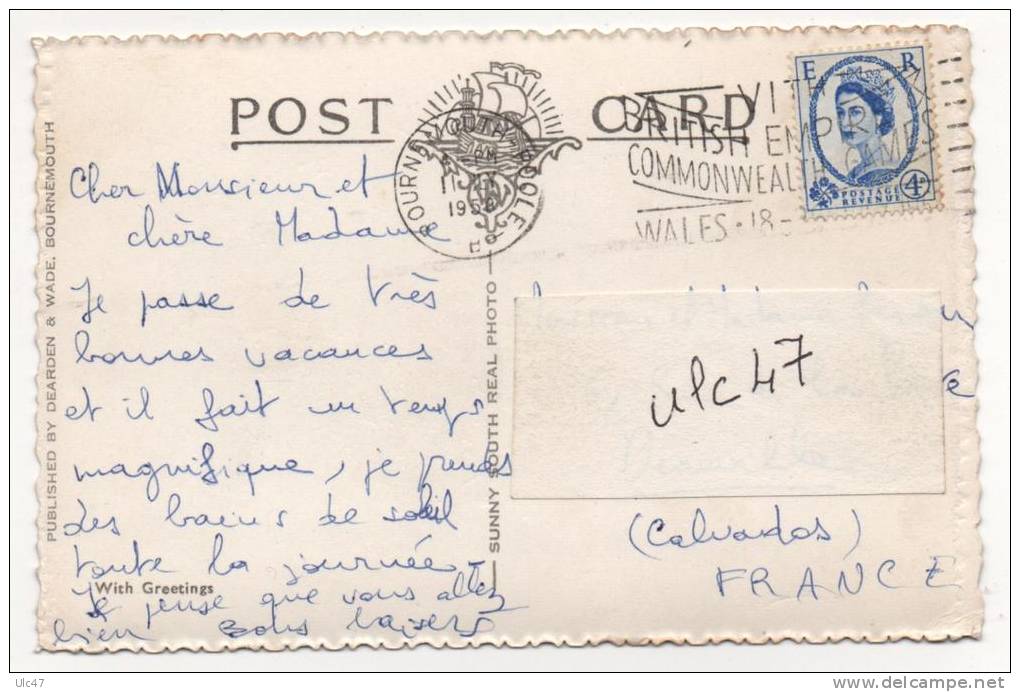 POST CARD
BOURNEMOUTH POOLE
1958
BRITISH EMPIRE
COMMONWEALTH GAMES
WALES · 18 -
E R
POSTAGE
REVENUE
4D
Cher Monsieur et
chère Madame
Je passe de très
bonnes vacances
et il fait un temps
magnifique, je prends
des bains de soleil
toute la journée -
Je pense que vous allez
bien Bons baisers
With Greetings
PUBLISHED BY DEARDEN & WADE, BOURNEMOUTH
SUNNY SOUTH REAL PHOTO
ulc47
(Calvados)
FRANCE
Ulc47
delcampe.net